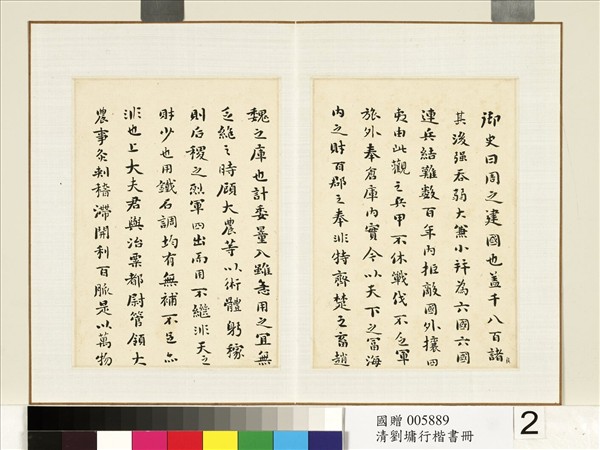 御史曰周之建國也蓋千八百諸侯
其後強吞弱大兼小并為六國六國
連兵結難數百年內拒敵國外攘四
夷由此觀之兵甲不休戰伐不乏軍
旅外奉倉庫內實今以天下之富海
內之財百郡之奉非特齊楚之畜趙
魏之庫也計委量入雖急用之宜無
乏絕之時顧大農等以術體躬稼
則后稷之烈軍四出而用不繼非天之
財少也用鐵石調均有無補不足亦
非也上大夫君與治粟都尉管領大
農事灸刺稽滯開利百脈是以萬物
國贈 005889
清劉墉行楷書冊
2